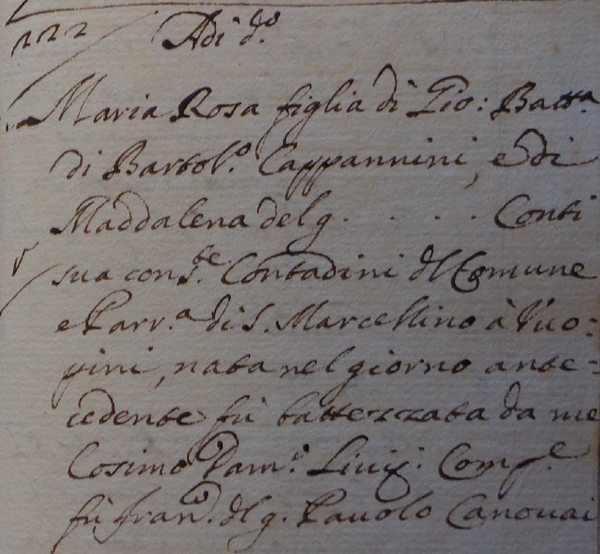 222 Adi d.o
Maria Rosa figlia di Gio: Batt.a
di Bartol.o Cappannini, e di
Maddalena del q. . . . . Conti
sua cons.te Contadini del Comune
e Parr.a di S. Marcellino à Vuo-
pini, nata nel giorno ante-
cedente fù battezzata da me
Cosimo Dam.o Comp.e
fù Fran.o del q. Pauolo Canouai